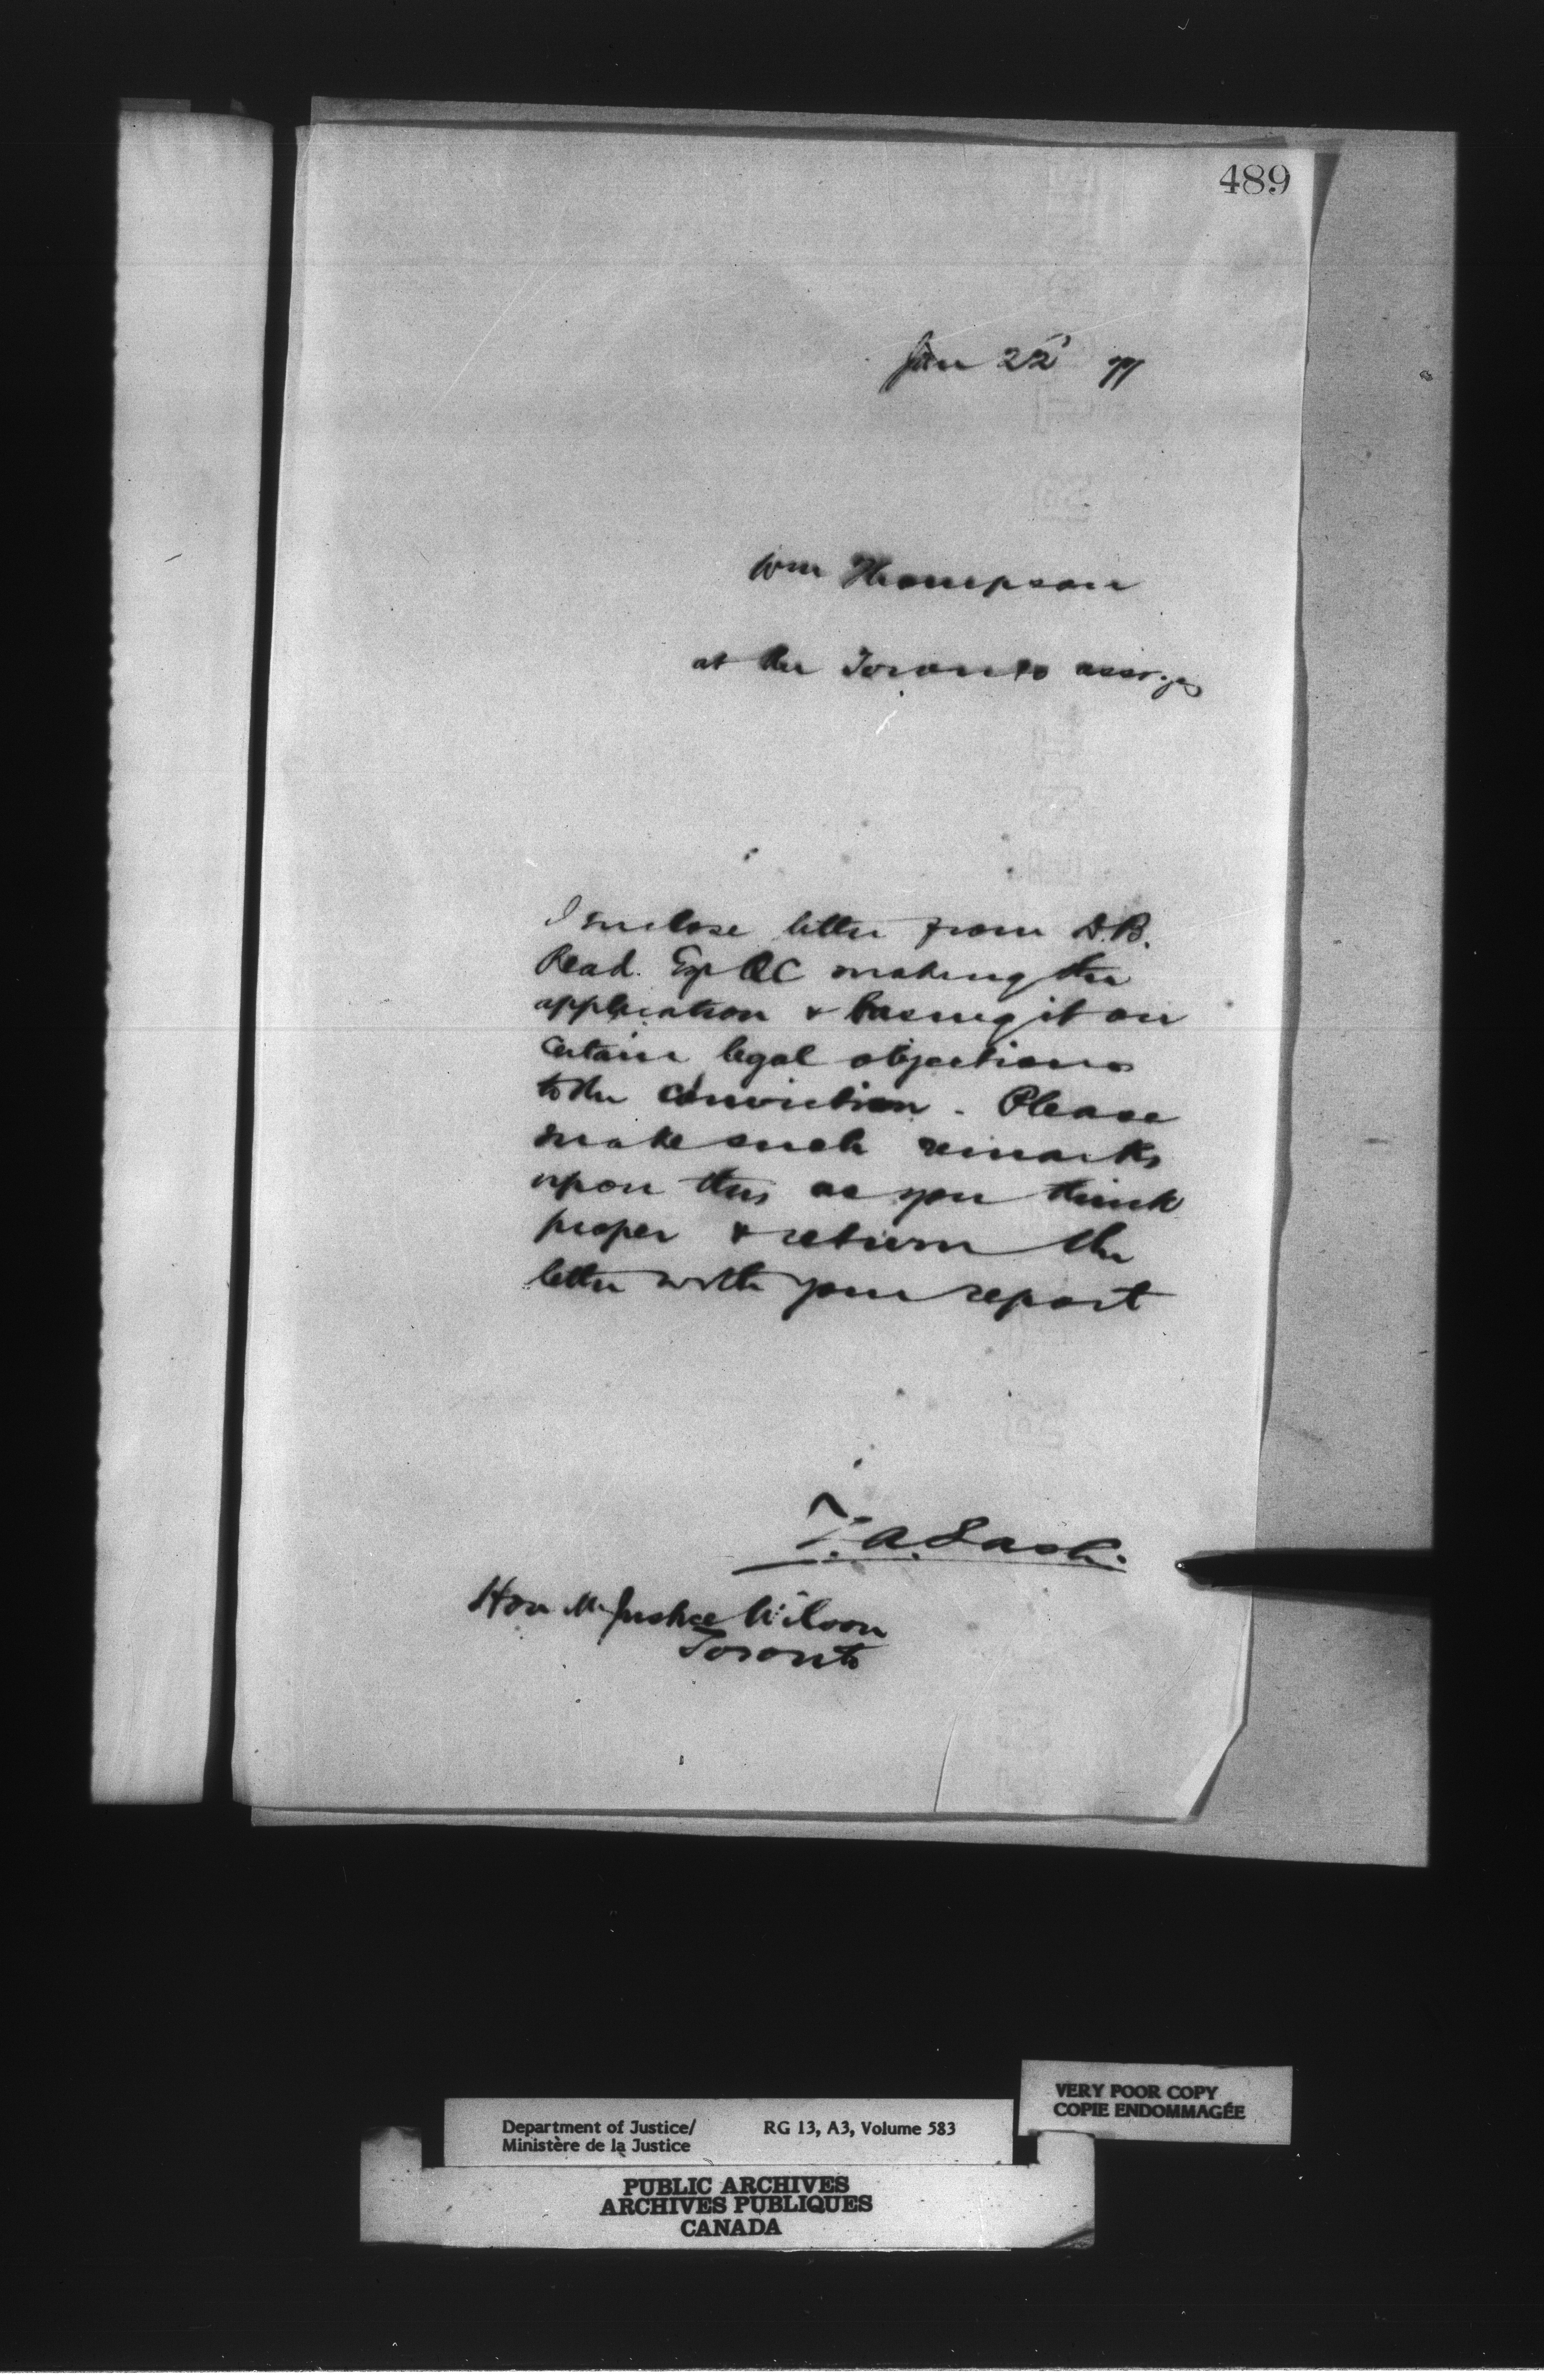 489
Jan 22d 77
Wm Thompson
at the Toronto assizes
I enclose letter from D.B.
Read. Esq QC making the
application & basing it on
certain legal objections
to the conviction. Please
make such remarks
upon this as you think
proper & return the
letter with your report
Z.A. Lash.
Hon Mr Justice Wilson
Toronto
VERY POOR COPY
COPIE ENDOMMAGÉE
Department of Justice/ RG 13, A3, Volume 583
Ministère de la Justice
PUBLIC ARCHIVES
ARCHIVES PUBLIQUES
CANADA